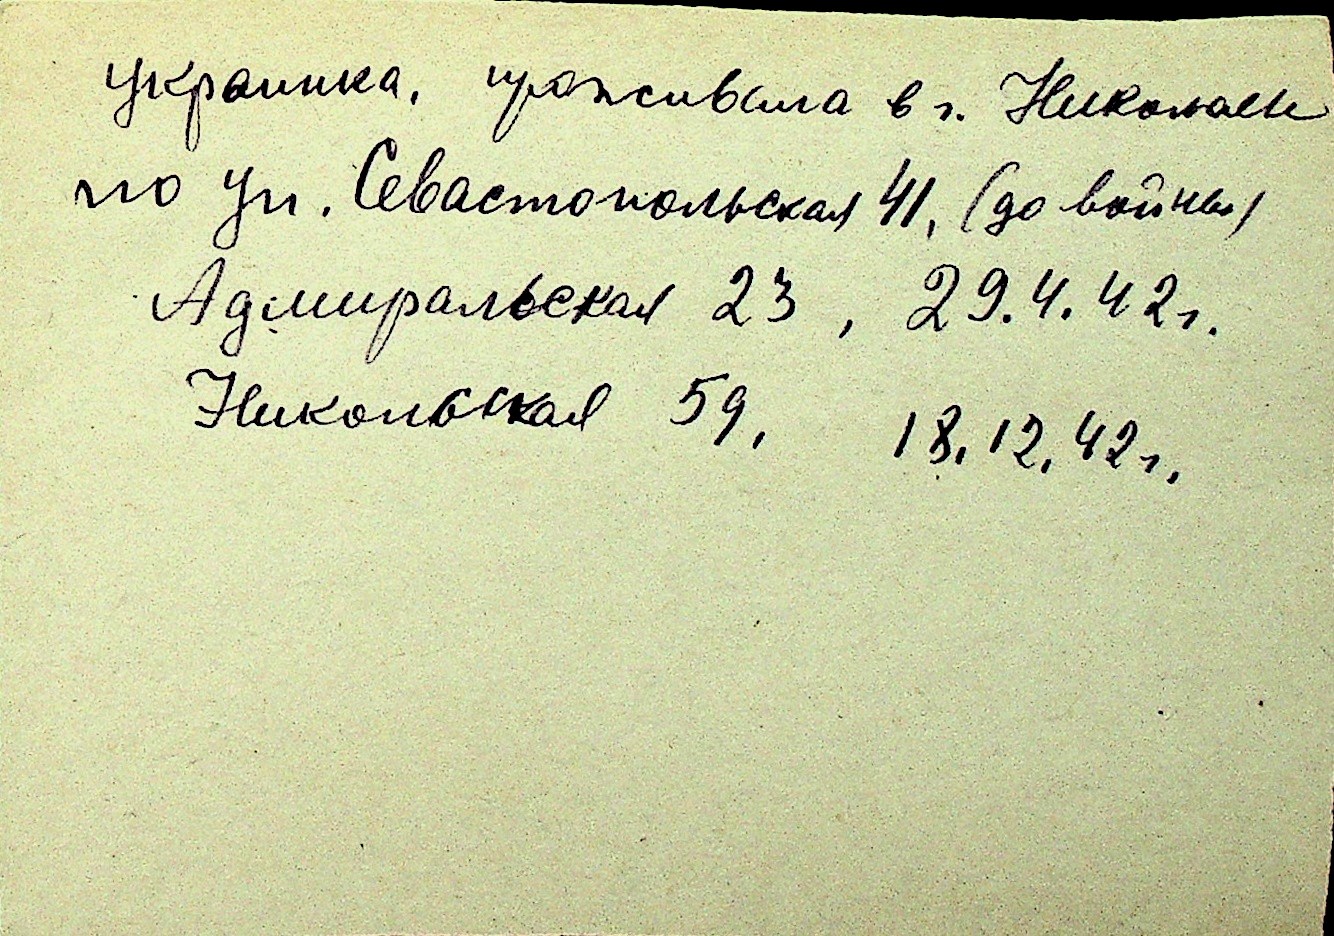 украинка, проживала в г. Николаеве
по ул. Севастопольская 41, (до войны)
Адмиральская 23, 29.4.42г.
Никольская 59, 18.12.42г.